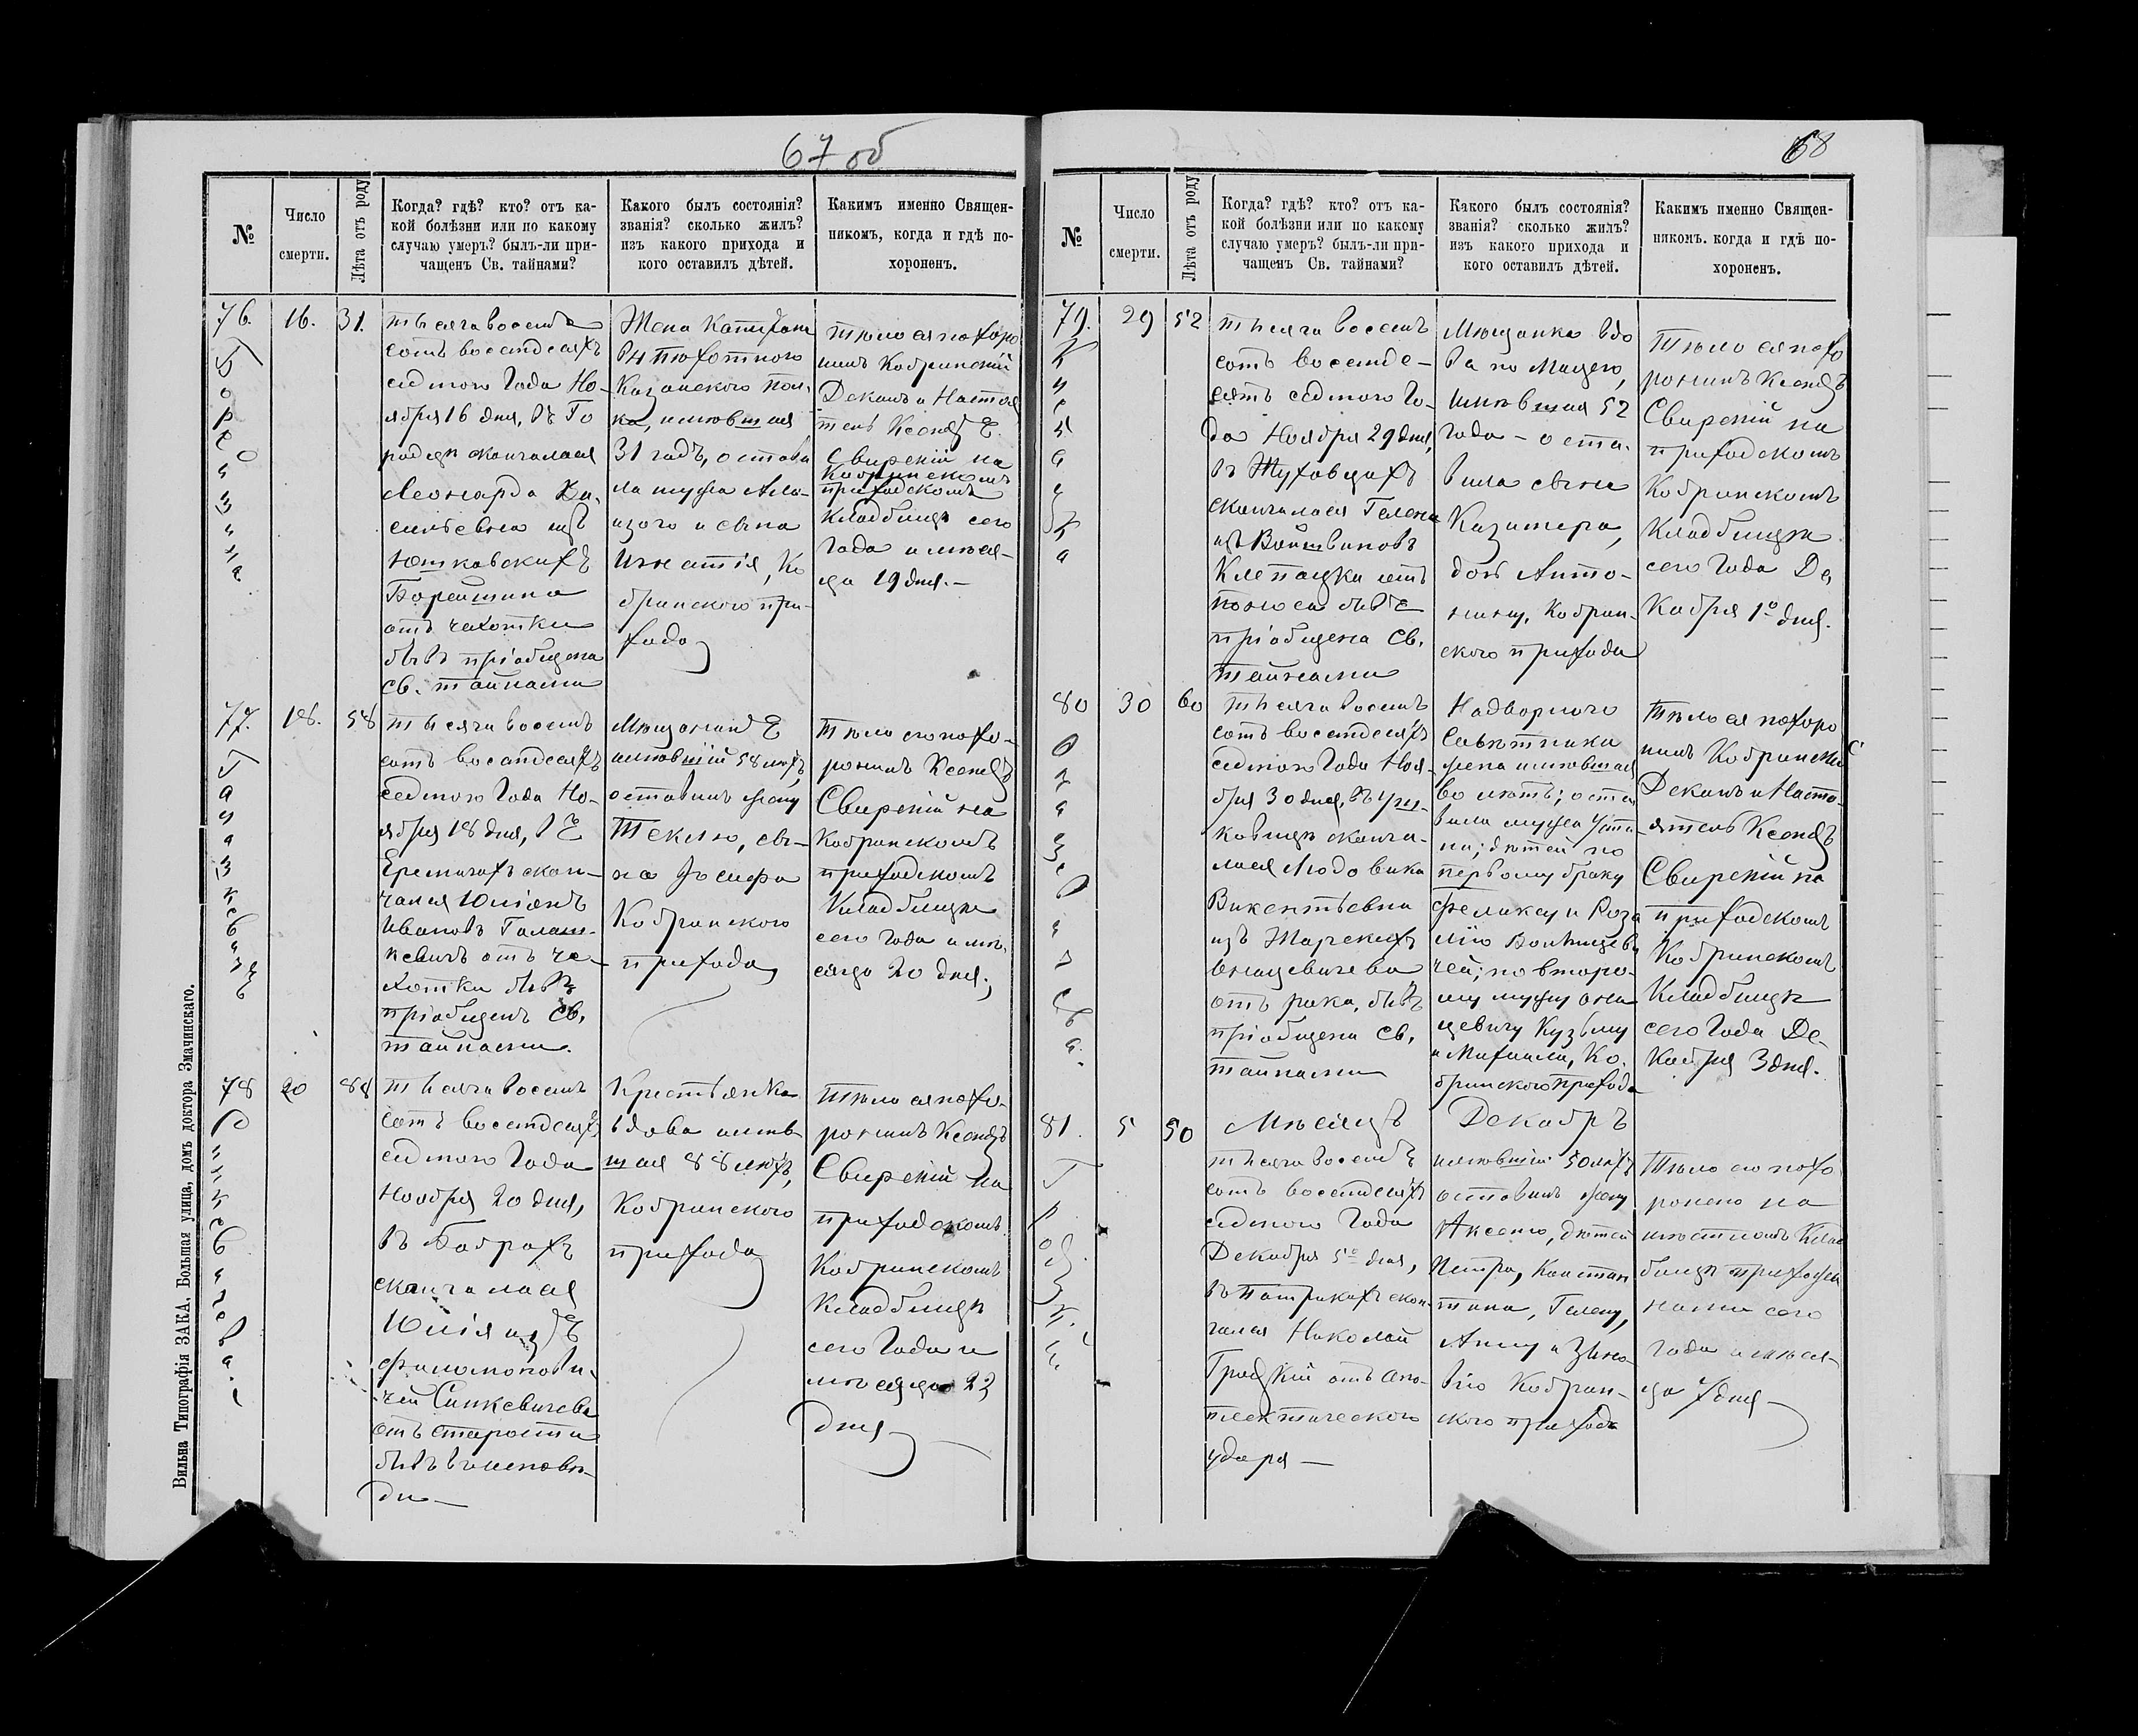 67 об
№
Число
смерти.
Лѣта отъ роду
Когда? гдѣ? кто? отъ ка-
кой болѣзни или по какому
случаю умеръ? былъ-ли при-
чащенъ Св. тайнами?
Какого былъ состоянія?
званія? сколько жилъ?
изъ какого прихода и
кого оставилъ дѣтей.
Какимъ именно Священ-
никомъ, когда и гдѣ по-
хороненъ.
76.
16.
31.
тысяча восемь
сотъ восемдесятъ
седмого Года Но-
ября 16 дня, въ Го
родцѣ скончалася
Леонарда Ва-
сильевна изъ
Юшковскихъ
Борейшина
отъ чахотки
бывъ пріобщена
Св. тайнами
Жена Капитана
Казанского пол-
ка, имювшая
31 годъ, остави
ла мужа Ало-
изого и сына
Игнатія, Ко
бринского при-
хода
тѣло ея похоро
нилъ Кобринскій
Деканъ и Настоя
тель Ксендзъ
Свирскій на
Кобринскомъ
приходскомъ
Кладбищѣ сего
Года и мѣся-
ца 19 дня.-
77.
18.
58
тысяча восемь
сотъ восемдесятъ
седмого Года Но-
ября 18 дня, въ
Еремичахъ скон-
чался Юліянъ
Ивановъ Галаш-
кевичъ отъ ча-
хотки бывъ
пріобщенъ Св.
тайнами.
Мѣщанинъ
имѣвшій 58 лѣтъ,
оставилъ жену
Теклю, сы-
на Іосифа
Кобринского
прихода
Тѣло его похо-
ронилъ Ксендзъ
Свирскій на
Кобринскомъ
приходскомъ
Кладбищѣ
сего Года и мѣ-
сяца 20 дня;
78
20
88
тысяча восемь
сотъ восемдесятъ
седмого Года
Ноября 20 дня,
въ Бобрахъ
скончалася
Юлія изъ
Филомонови-
чей Синкевичева
отъ старости
бывъ въ исповѣ-
ди-
Крестьянка
вдова имѣв
шая 88 лѣтъ,
Кобринского
прихода
Тѣло ея похо-
ронилъ Ксендзъ
Свирскій на
приходскомъ
Кобринскомъ
Кладбищѣ
сего Года и
мѣсяца 23
дня
Вильна Типографія ЗАКА, Большая улица, домъ доктора Змачинскаго.
68
№
Число
смерти.
Лѣта отъ роду
Когда? гдѣ? кто? отъ ка-
кой болѣзни или по какому
случаю умеръ? былъ-ли при-
чащенъ Св. тайнами?
Какого былъ состоянія?
званія? сколько жилъ?
изъ какого прихода и
кого оставилъ дѣтей.
Какимъ именно Священ-
никомъ. когда и гдѣ по-
хороненъ.
79.
29
52
тысяча восемь
сотъ восемде-
сятъ седмого Го-
да Ноября 29 дня,
въ Жуховцахъ
скончалася Гелена
изъ Войшвиновъ
Клепацка отъ
поноса бывъ
пріобщена Св.
тайнами
Мѣщанка вдо
ва по Мацею,
имѣвшая 52
года - оста-
вила сына
Казимера,
дочь Анто-
нину, Кобрин-
ского прихода
Тѣло ея похо
ронилъ Ксендзъ
Свирскій на
приходскомъ
Кобринскомъ
Кладбищѣ
сего Года Де
кабря 1º дня.
80
30
60
тысяча восемь
сотъ восемдесятъ
седмого Года Ноя-
бря 30 дня, въ Уш-
ковицѣ сконча-
лася Людовика
Викентьевна
изъ Жарскихъ
Онацевичева
отъ рака, бывъ
пріобщена Св.
тайнами
Надворного
Совѣтника
жена имѣвшая
60 лѣтъ; оста
вила мужа Усти
на; дѣтей по
первому браку
Феликсу и Роза
лію
чей; по второ-
му мужу Она
цевичу Кузьму
и Михаила, Ко-
бринского прихода
Тѣло ея похоро
нилъ Кобринскій
Деканъ и Насто-
ятель Ксендзъ
Свирскій на
приходскомъ
Кобринскомъ
Кладбищѣ
сего Года Де-
кабря 3 дня.
Мѣсяцъ Декабръ
81.
5
50
тысяча восемь
сотъ восемдесятъ
седмого Года
Декабря 5º дня,
въ Патрикахъ скон-
чался Николай
Гродзкій отъ апо-
плектического
удара-
имѣвшій 50 лѣтъ
оставилъ жену
Аксеню, дѣтей
Петра, Констан
тина, Гелену,
Анну и Зѣно-
вію Кобрин-
ского прихода
Тѣло его похо
ронено на
мѣстномъ Клад
бищѣ прихожа
нами сего
года и мѣся-
ца 7 дня